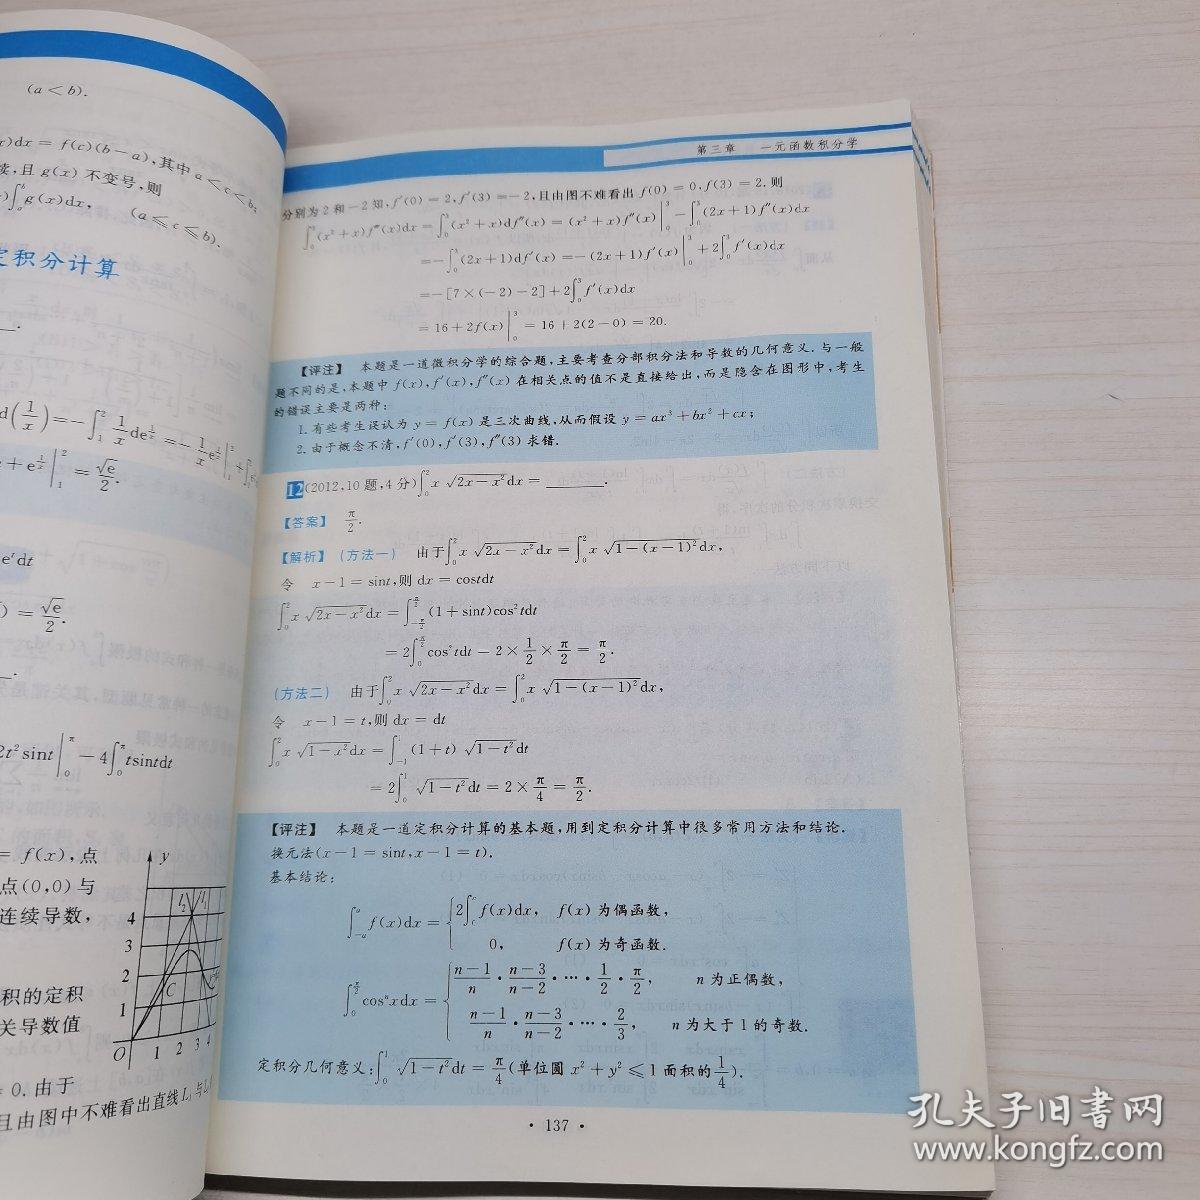 (a < b).
x)dx = f(c)(b-a),其中 a < c < b;
续,且 g(x) 不变号,则
∫_a^b g(x)dx, (a ⩽ c ⩽ b).
定积分计算
d(1/x) = -∫_1^2 1/x de^{1/x} = -1/x e^{1/x}|_1^2 +
+ e^{1/x}|_1^2 = √e/2.
e^t dt
) = √e/2.
2t² sint|_0^π - 4∫_0^π tsintdt
= f(x),点
点(0,0)与
连续导数,
积的定积
关导数值
0.由于
且由图中不难看出直线 L₁ 与 L₂
y
4
3
2
1
O 1 2 3 4
C
第三章 一元函数积分学
分别为 2 和 -2 知, f′(0) = 2, f′(3) = -2,且由图不难看出 f(0) = 0, f(3) = 2.则
∫_0^3 (x²+x)f‴(x)dx = ∫_0^3 (x²+x)df″(x) = (x²+x)f″(x)|_0^3 - ∫_0^3 (2x+1)f″(x)dx
= -∫_0^3 (2x+1)df′(x) = -(2x+1)f′(x)|_0^3 + 2∫_0^3 f′(x)dx
= -[7×(-2)-2]+2∫_0^3 f′(x)dx
= 16+2f(x)|_0^3 = 16+2(2-0) = 20.
【评注】 本题是一道微积分学的综合题,主要考查分部积分法和导数的几何意义.与一般
题不同的是,本题中 f(x), f′(x), f″(x) 在相关点的值不是直接给出,而是隐含在图形中,考生
的错误主要是两种:
1.有些考生误认为 y = f(x) 是三次曲线,从而假设 y = ax³+bx²+cx;
2.由于概念不清, f′(0), f′(3), f″(3) 求错.
12 (2012,10题,4分) ∫_0^2 x √(2x-x²)dx = ______.
【答案】 π/2.
【解析】 (方法一) 由于∫_0^2 x √(2x-x²)dx = ∫_0^2 x √(1-(x-1)²)dx,
令 x-1 = sint,则 dx = costdt
∫_0^2 x √(2x-x²)dx = ∫_{-π/2}^{π/2} (1+sint)cos²tdt
= 2∫_0^{π/2} cos²tdt = 2×1/2×π/2 = π/2.
(方法二) 由于∫_0^2 x √(2x-x²)dx = ∫_0^2 x √(1-(x-1)²)dx,
令 x-1 = t,则 dx = dt
∫_0^2 x √(1-x²)dx = ∫_{-1}^1 (1+t) √(1-t²)dt
= 2∫_0^1 √(1-t²)dt = 2×π/4 = π/2.
【评注】 本题是一道定积分计算的基本题,用到定积分计算中很多常用方法和结论.
换元法(x-1 = sint, x-1 = t).
基本结论:
∫_{-a}^a f(x)dx = { 2∫_0^a f(x)dx, f(x) 为偶函数,
0, f(x) 为奇函数.
∫_0^{π/2} cosⁿxdx = { (n-1)/n · (n-3)/(n-2) · … · 1/2 · π/2, n 为正偶数,
(n-1)/n · (n-3)/(n-2) · … · 2/3, n 为大于 1 的奇数.
定积分几何意义:∫_0^1 √(1-t²)dt = π/4 (单位圆 x²+y² ⩽ 1 面积的 1/4).
· 137 ·
孔夫子旧书网
www.kongfz.com